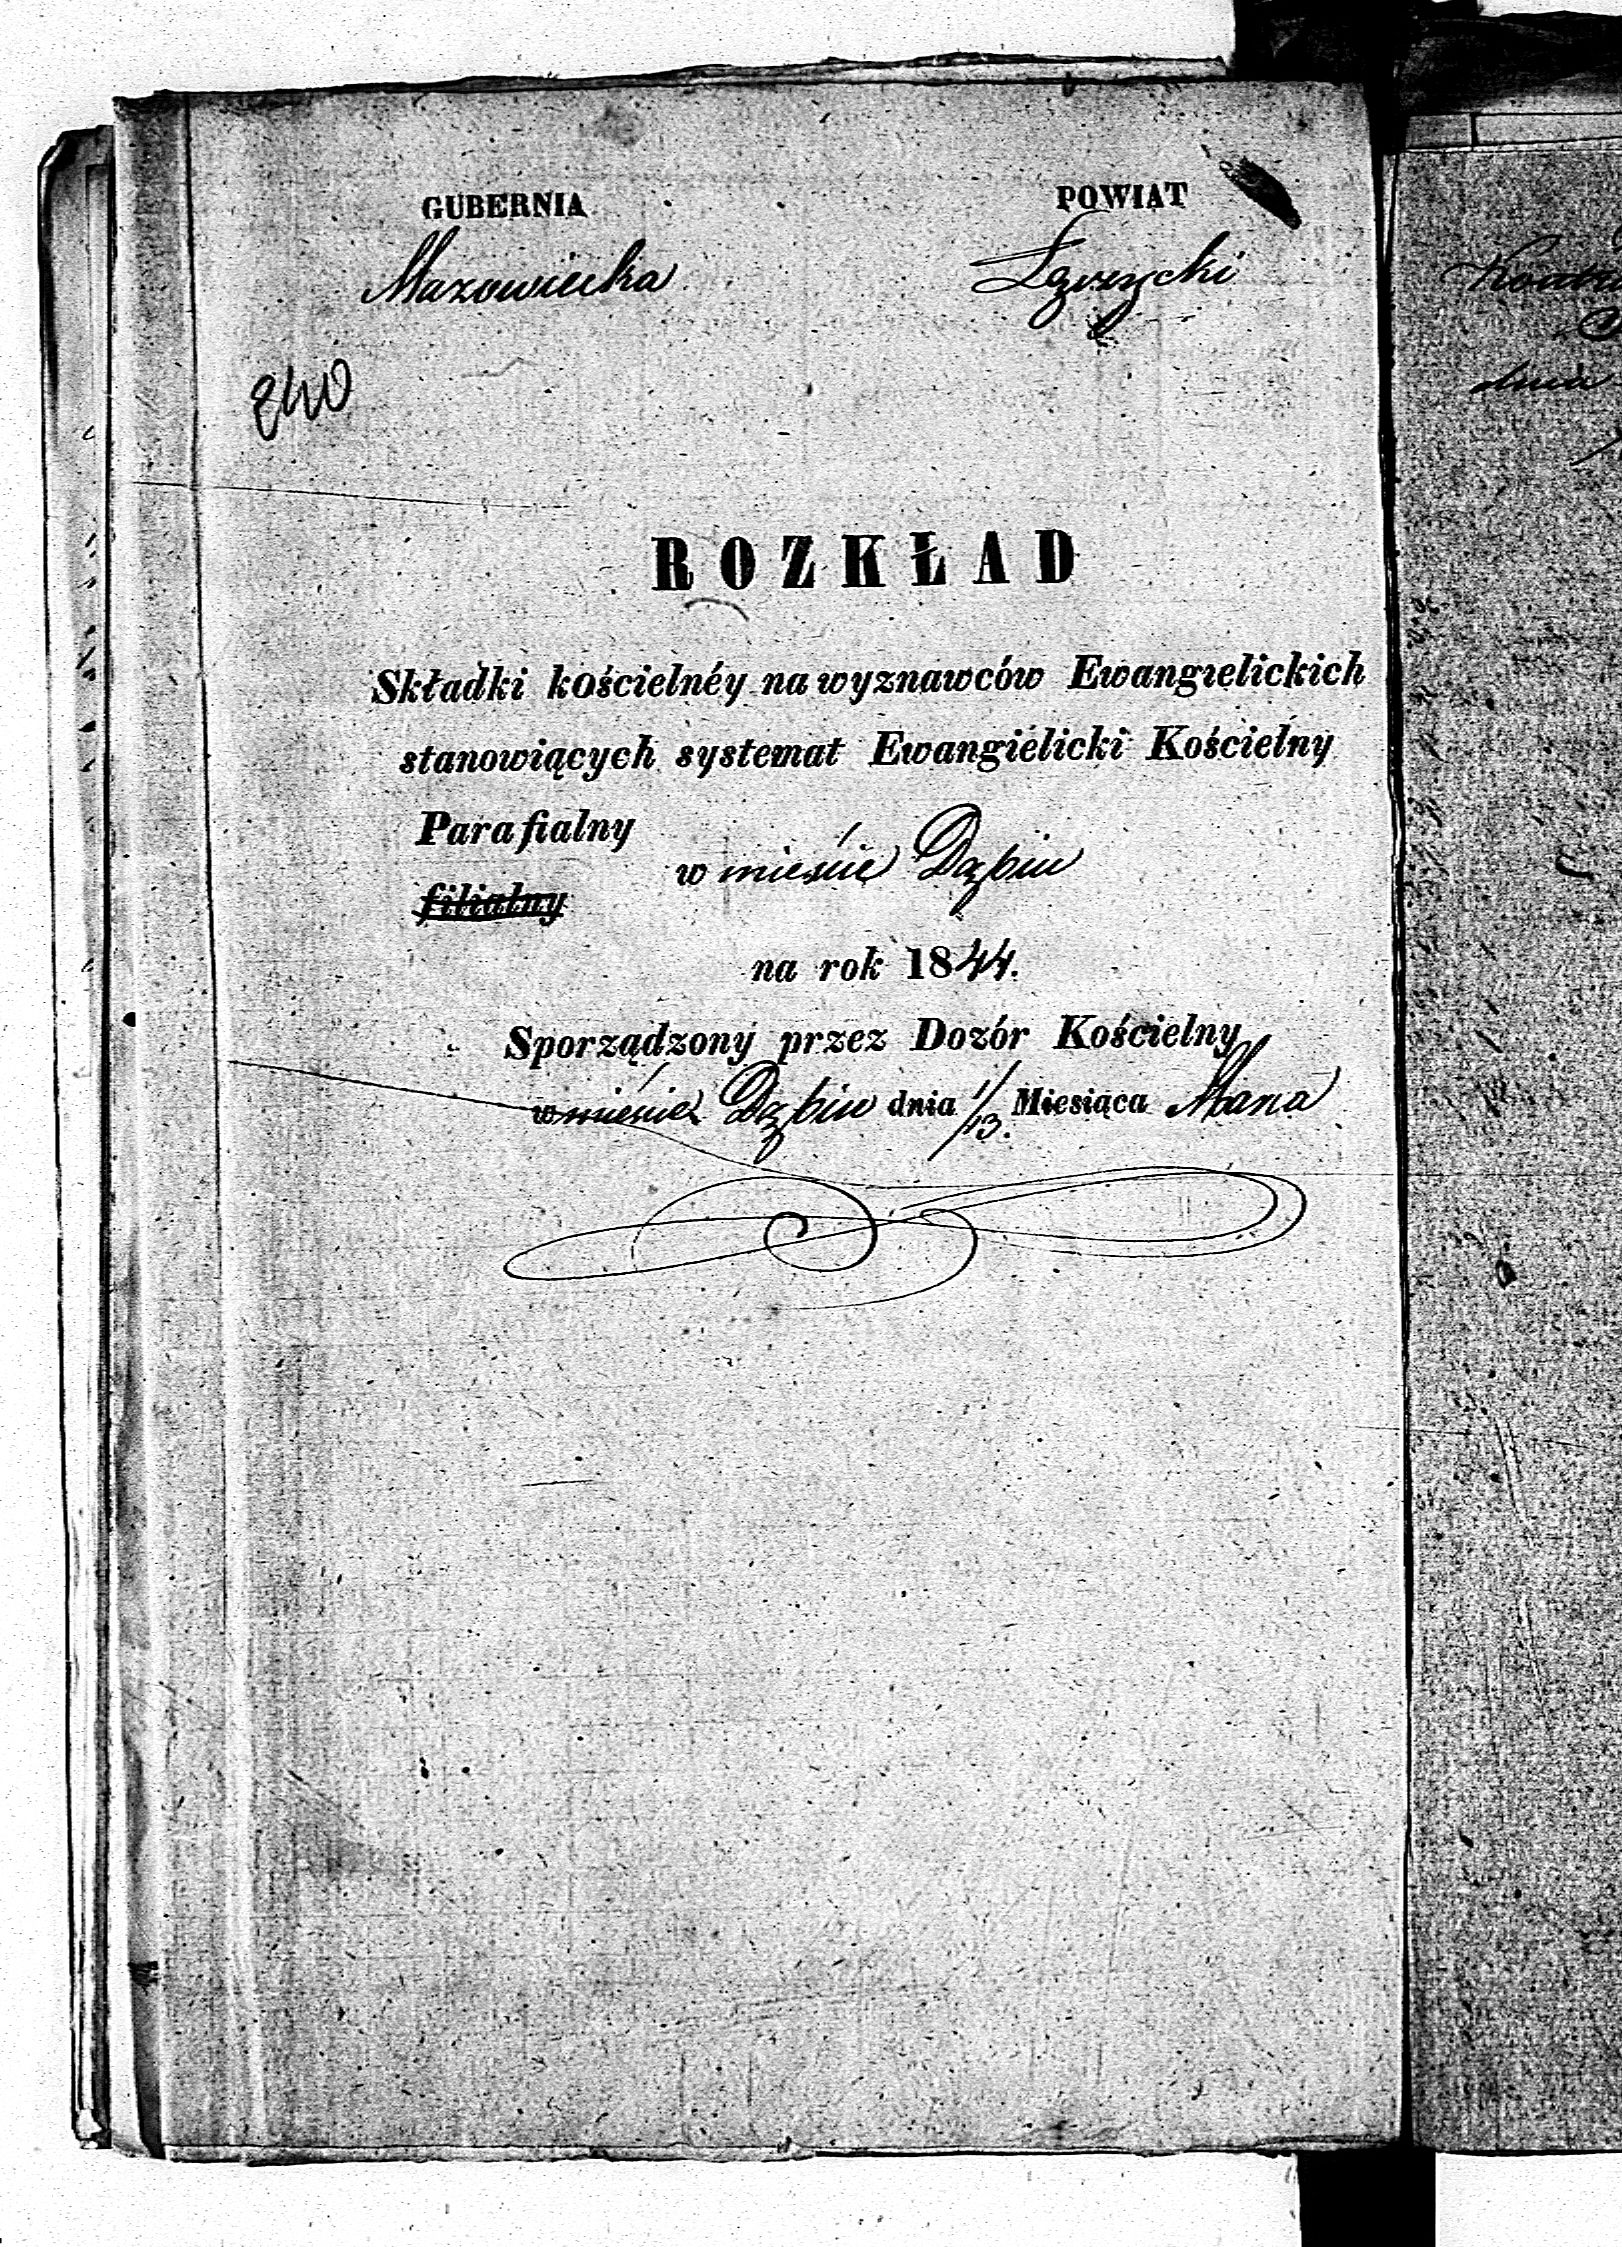 GUBERNIA POWIAT
Mazowiecka Łęczycki
ROZKŁAD
Składki kościelnéy na wyznawców Ewangielickich
stanowiących systemat Ewangielicki Kościelny
Parafialny
w mieście Dąbiu
filialny
na rok 1844.
Sporządzony przez Dozór Kościelny
w mieście Dąbiu dnia 1/13. Miesiąca Maia
dnia